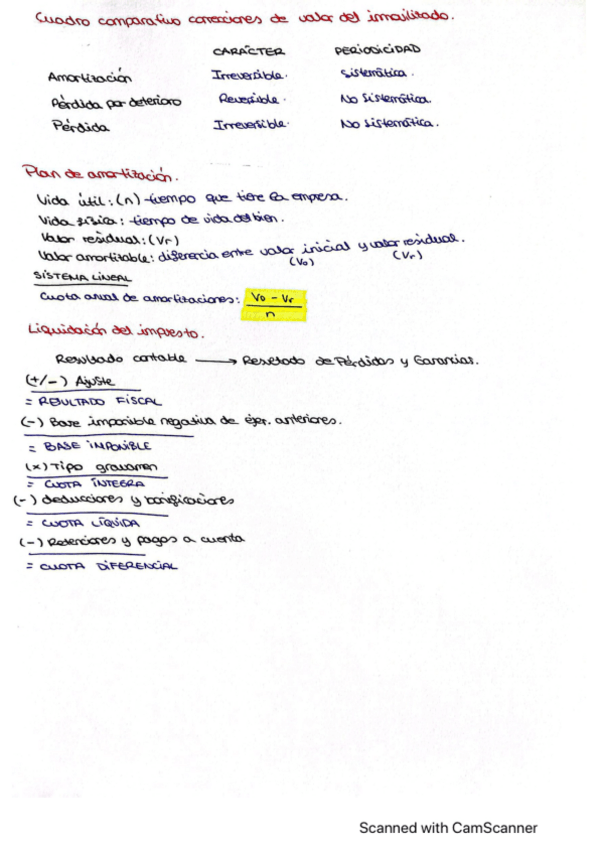 Cuadro comparativo correcciones de valor del inmovilizado.
CARÁCTER PERIODICIDAD
Amortización Irreversible. Sistemática.
Pérdida por deterioro Reversible. No Sistemática.
Pérdida Irreversible. No sistemática.
Plan de amortización.
Vida útil: (n) tiempo que tiene la empresa.
Vida física: tiempo de vida del bien.
Valor residual: (Vr)
Valor amortizable: diferencia entre valor inicial y valor residual.
(Vo) (Vr)
SISTEMA LINEAL
Cuota anual de amortizaciones: Vo - Vr
n
Liquidación del impuesto.
Resultado contable → Resultado de Pérdidas y Ganancias.
(+/-) Ajuste
= RESULTADO FISCAL
(-) Base imponible negativa de ejer. anteriores.
= BASE IMPONIBLE
(x) Tipo gravamen
= CUOTA ÍNTEGRA
(-) deducciones y bonificaciones
= CUOTA LÍQUIDA
(-) Retenciones y pagos a cuenta
= CUOTA DIFERENCIAL
Scanned with CamScanner